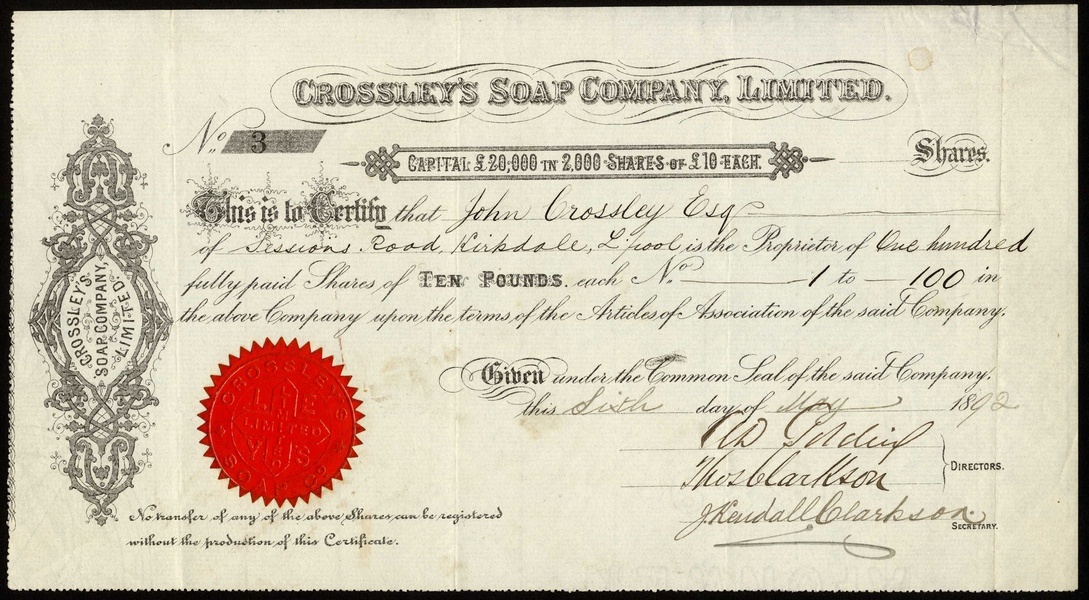 CROSSLEY'S SOAP COMPANY, LIMITED.
No. 3
CAPITAL £20,000 IN 2,000 SHARES OF £10 EACH.
Shares.
This is to Certify that John Crossley Esq
of Sessions Road, Kirkdale, L'pool is the Proprietor of One hundred
fully paid Shares of TEN POUNDS. each No. 1 to 100 in
the above Company upon the terms of the Articles of Association of the said Company.
CROSSLEY'S
SOAP COMPANY,
LIMITED.
Given under the Common Seal of the said Company,
this Sixth day of May 1892
Thos Clarkson
DIRECTORS.
J. Kendall Clarkson
SECRETARY.
CROSSLEY'S
LIMITED
SOAP CO
No transfer of any of the above Shares can be registered
without the production of this Certificate.